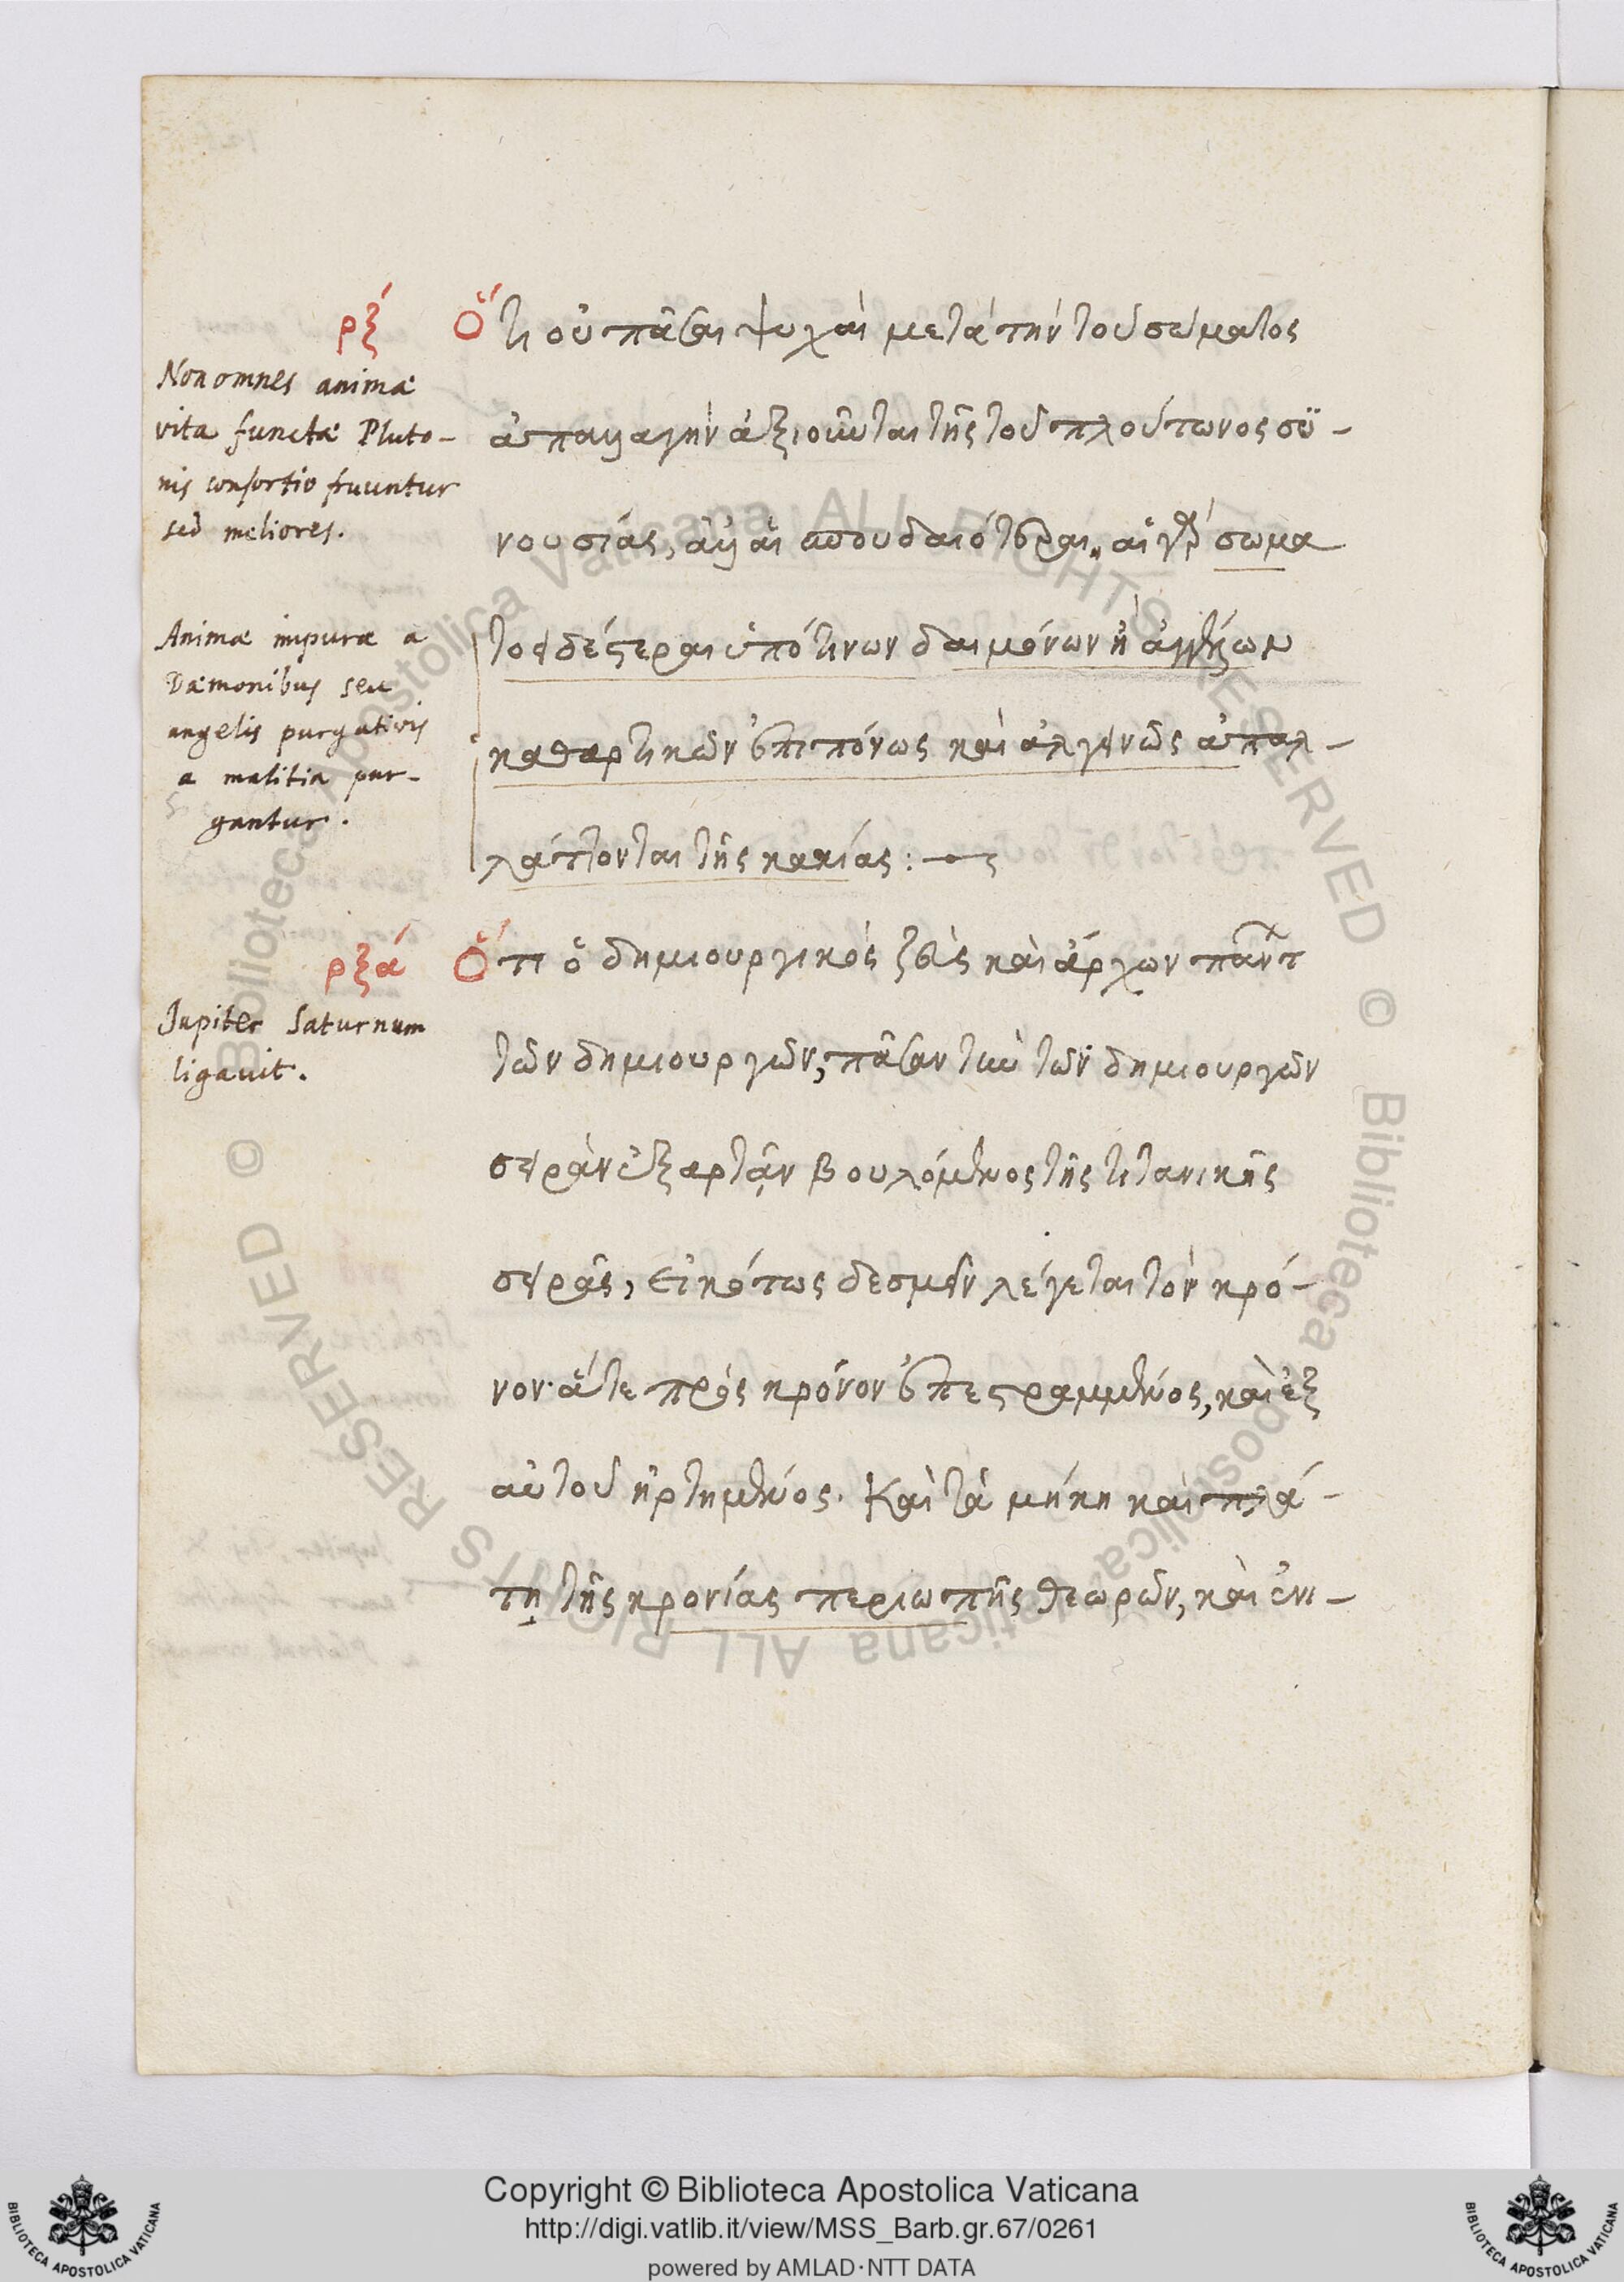 ρξ´
Ὅτι οὐ πᾶσαι ψυχαὶ μετὰ τὴν τοῦ σώματος
ἀπαλλαγὴν ἀξιοῦνται τῆς τοῦ πλούτωνος συ-
νουσίας, ἀλλ' αἱ σπουδαιότεραι. αἱ γὰρ σωμα
τοειδέστεραι ὑπό τινων δαιμόνων ἢ ἀγγέλων
καθαρτικῶν ἐπιπόνως καὶ ἀλγεινῶς ἀπαλ-
λάττονται τῆς κακίας:
Non omnes animæ
vita functæ Pluto-
nis consortio fruuntur
sed meliores.
Animæ impuræ a
Dæmonibus seu
angelis purgativis
a malitia pur-
gantur.
ρξα´
Ὅτι ὁ δημιουργικὸς ζεὺς καὶ ἄρχων πάντ
τῶν δημιουργῶν, πᾶσαν τὴν τῶν δημιουργῶν
σειρὰν ἐξαρτᾷν βουλόμενος τῆς τιτανικῆς
σειρᾶς, εἰκότως δεσμεῖν λέγεται τὸν κρό-
νον· ἅτε πρὸς κρόνον ἐπεστραμμένος, καὶ ἐξ
αὐτοῦ ἠρτημένος. Καὶ τὰ μήκη καὶ πλά-
τη τῆς κρονίας περιωπῆς θεωρῶν, καὶ ἐνι-
Jupiter Saturnum
ligavit.
Copyright © Biblioteca Apostolica Vaticana
http://digi.vatlib.it/view/MSS_Barb.gr.67/0261
powered by AMLAD·NTT DATA
BIBLIOTECA APOSTOLICA VATICANA
BIBLIOTECA APOSTOLICA VATICANA
© Biblioteca Apostolica Vaticana ALL RIGHTS RESERVED
© Biblioteca Apostolica Vaticana ALL RIGHTS RESERVED